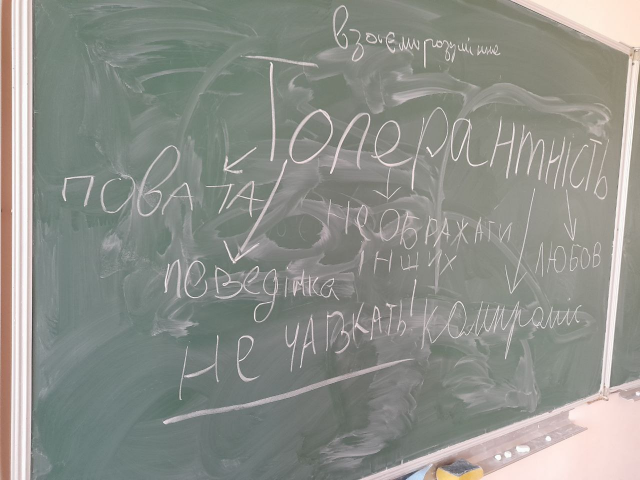 взаєморозуміння
Толерантність
ПОВАГА
НЕ ОБРАЖАТИ
ІНШИХ
ЛЮБОВ
поведінка
компроміс
Не